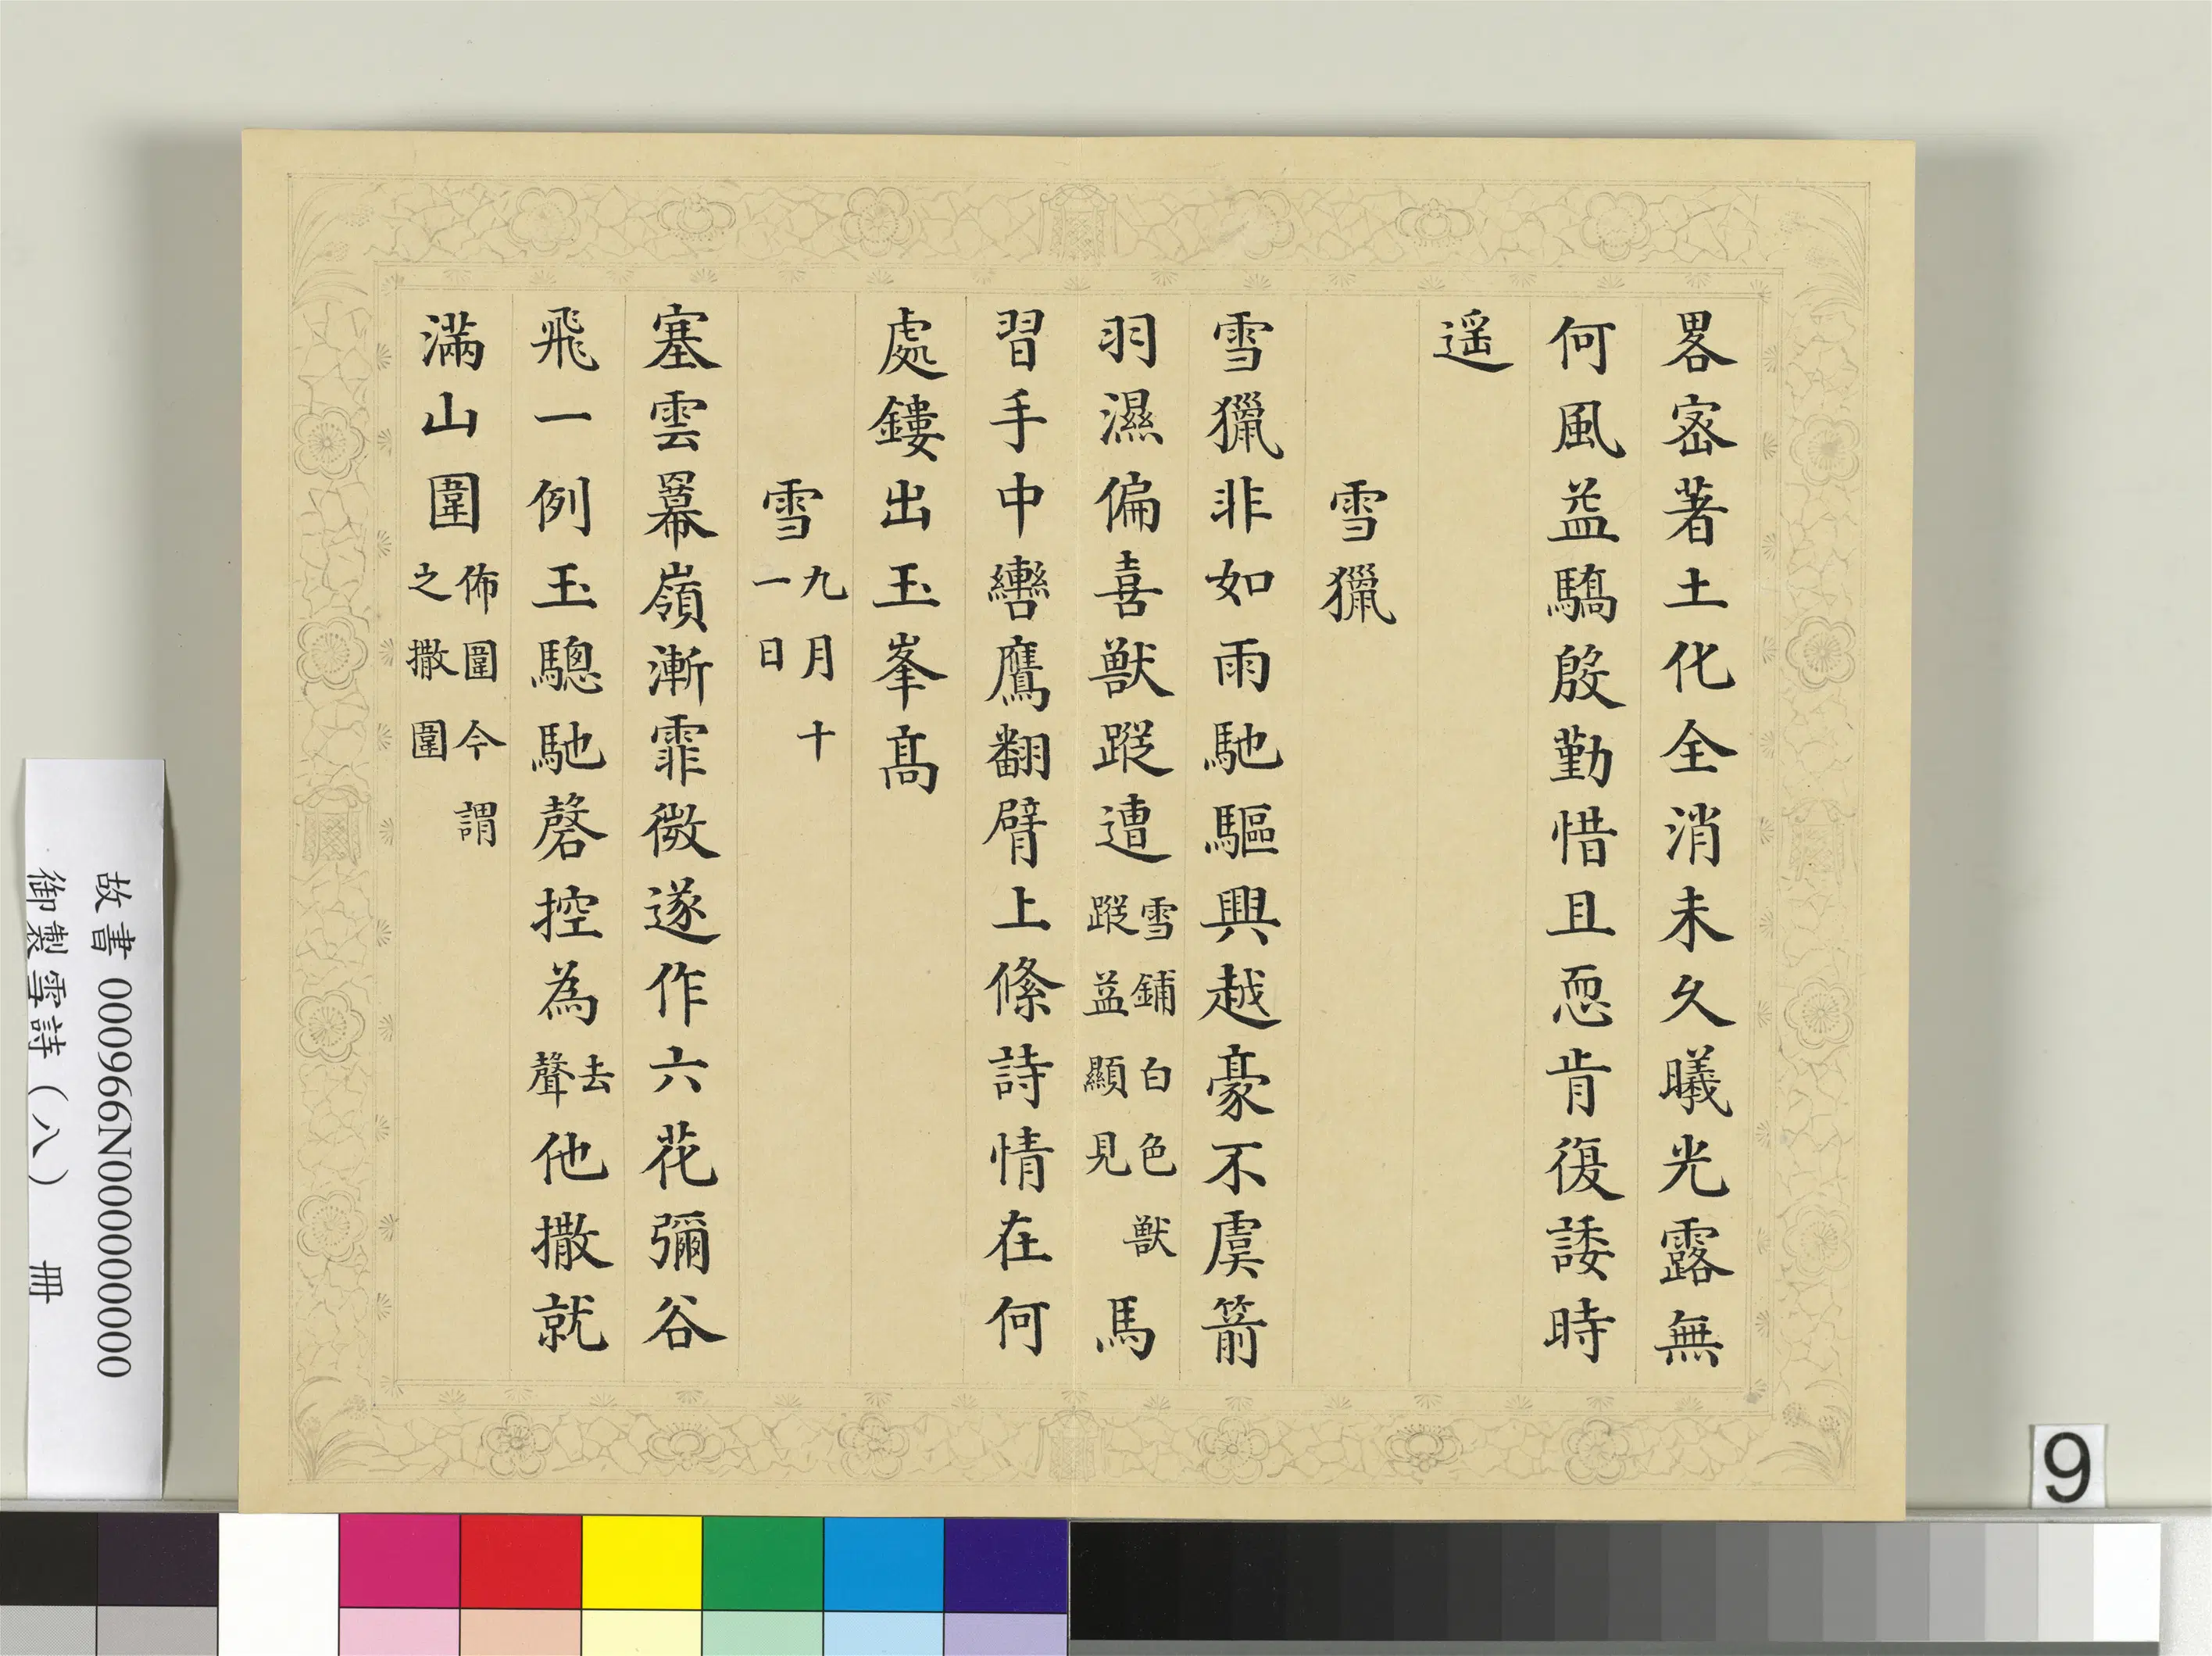 畧宻著土化全消未久曦光露無
何風益驕殷勤惜且恧肯復諉時
遥
雪獵
雪獵非如雨馳驅興越豪不虞箭
羽濕偏喜獸蹤遭雪鋪白色獸蹤益顯見馬
習手中轡鷹翻臂上絛詩情在何
處鏤出玉峯髙
雪九月十一日
塞雲羃嶺漸霏微遂作六花彌谷
飛一例玉驄馳磬控為去聲他撒就
滿山圍佈圍今謂之撒圍
故書 000966N000000000
御製雪詩(八) 冊
9